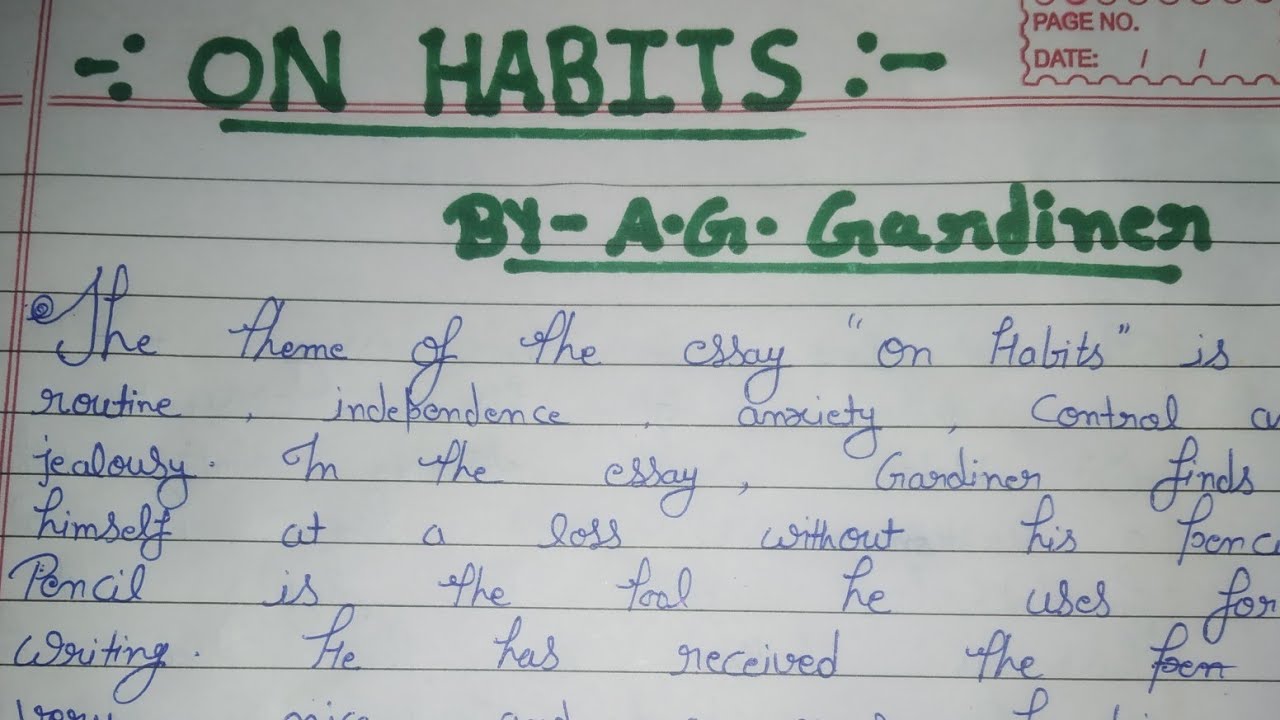 PAGE NO.
DATE: / /
-: ON HABITS :-
BY- A.G. Gardiner
The theme of the essay "On Habits" is
routine, independence, anxiety, Control
jealousy. In the essay, Gardiner finds
himself at a loss without his
Pencil is the tool he uses for
writing. He has received the pen
and